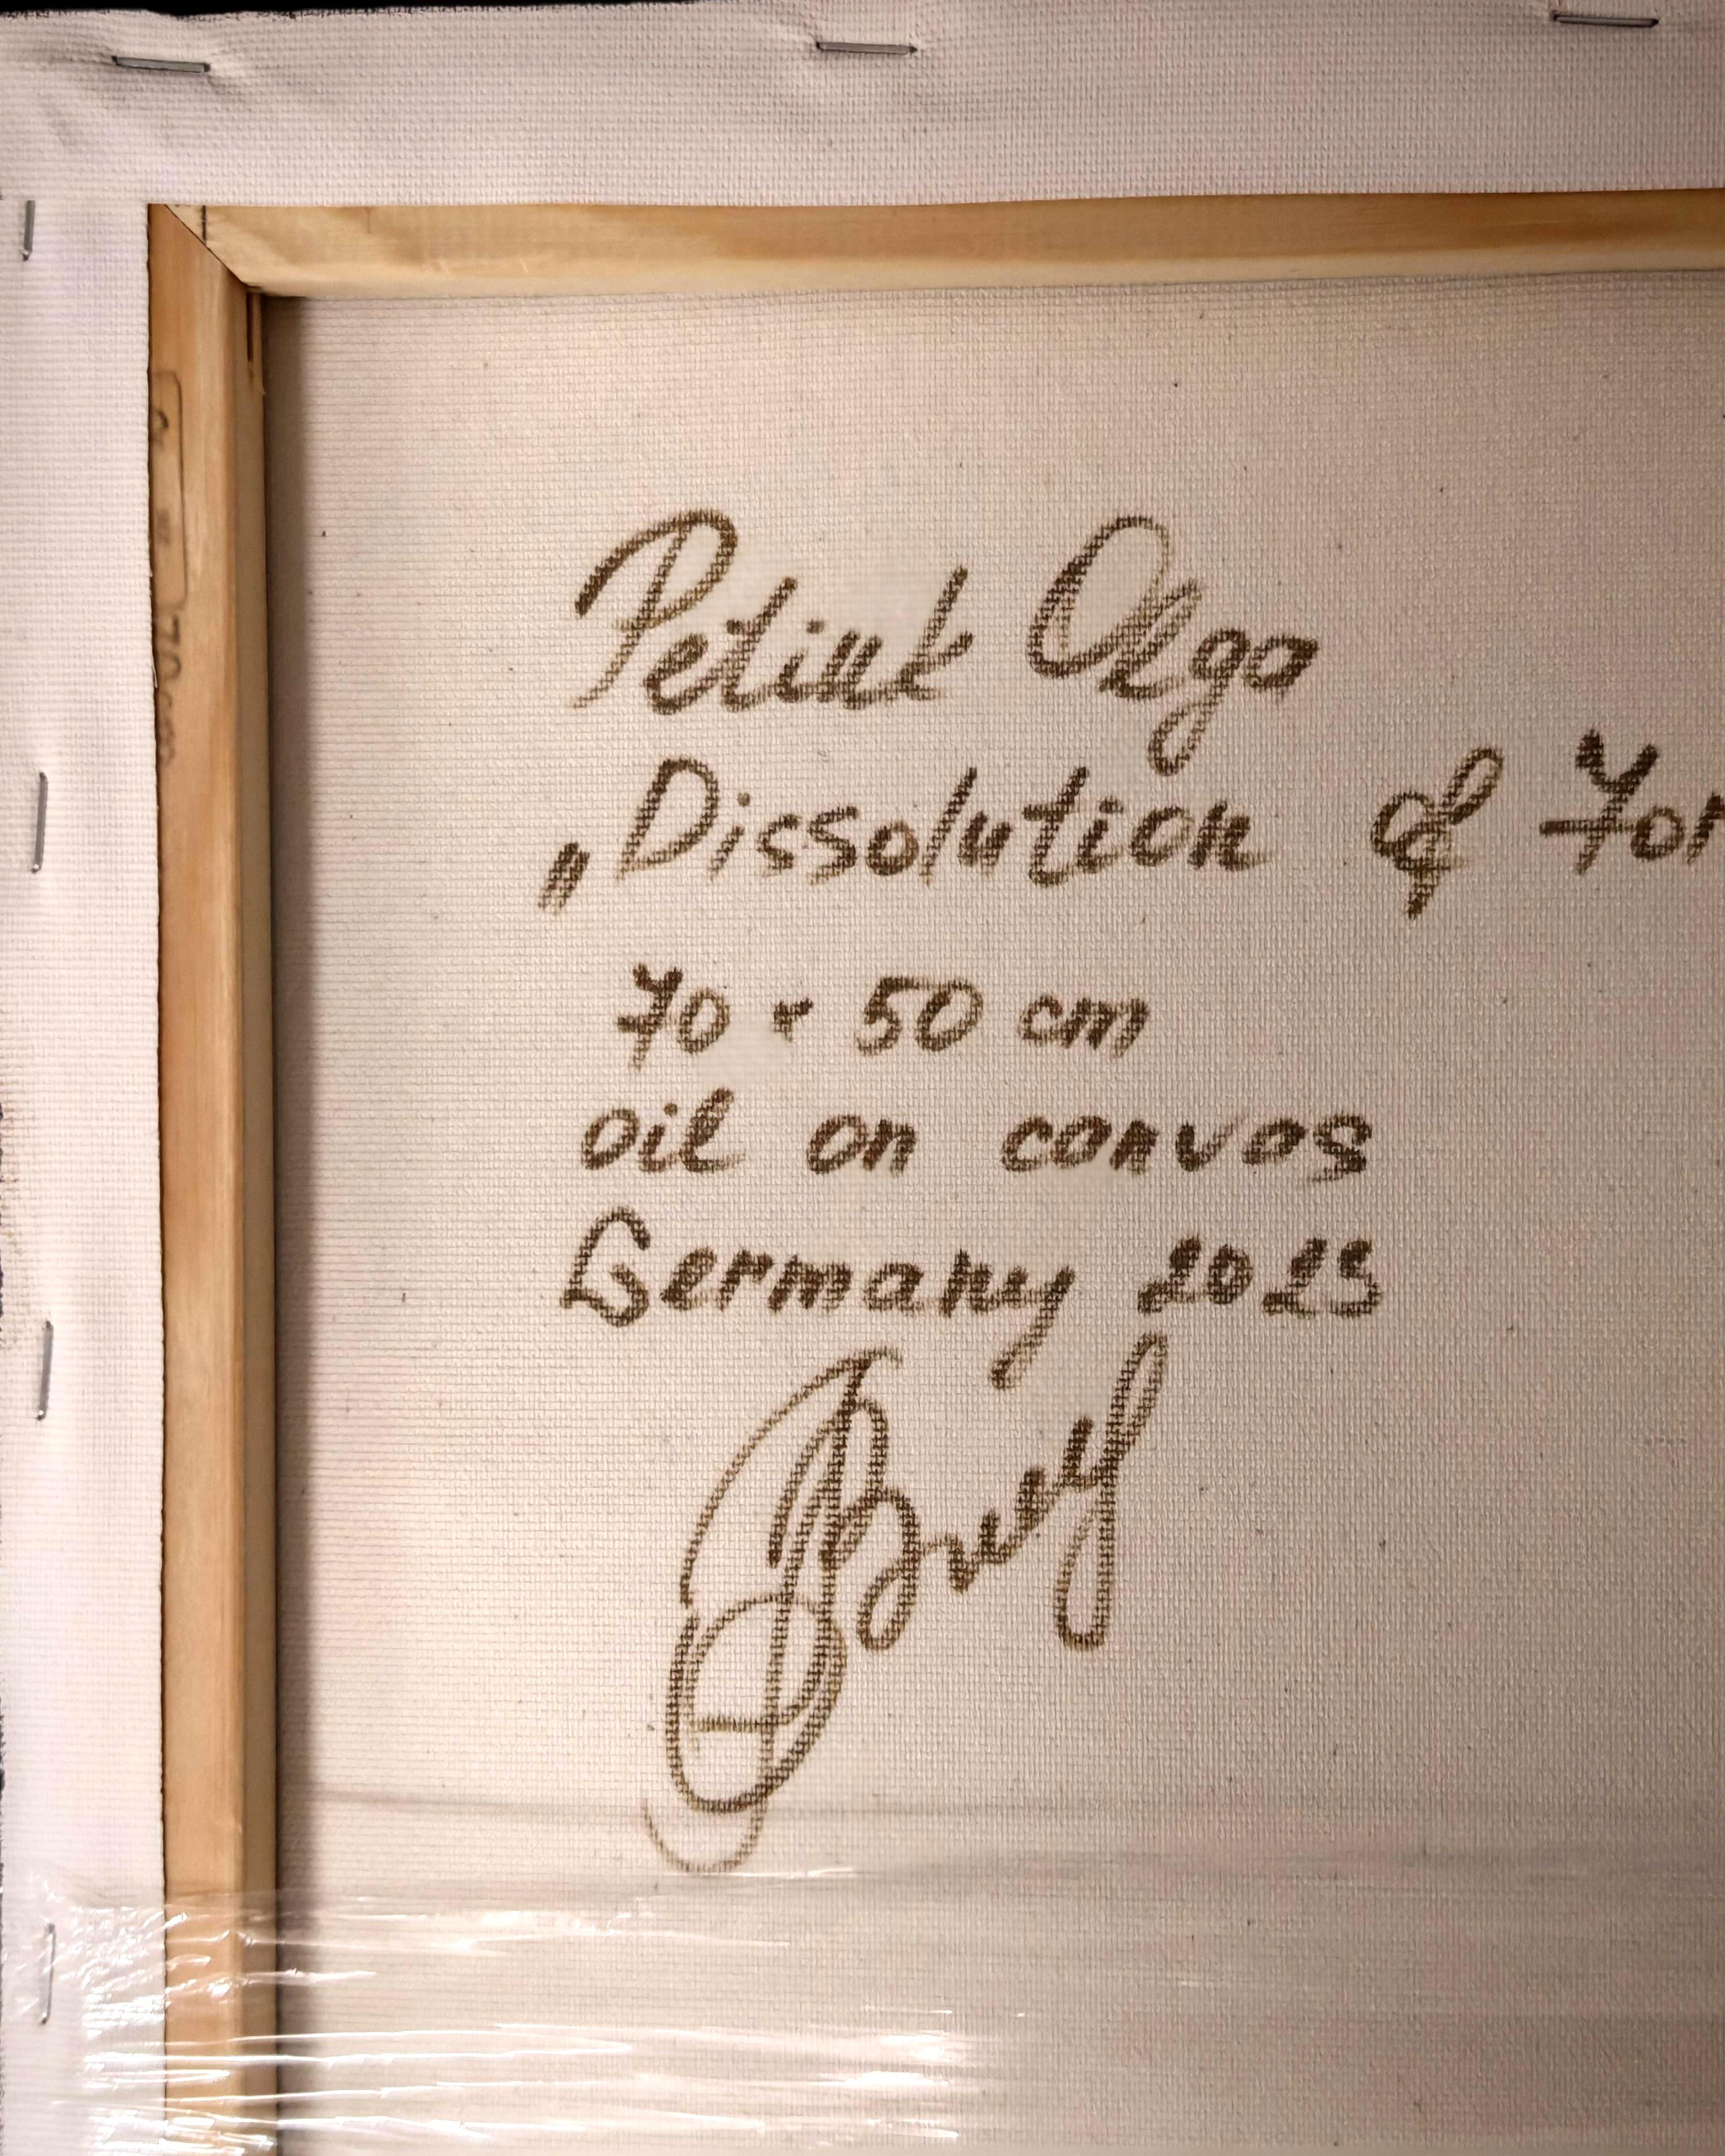 Petiuk Olga
„Dissolution of For
70 × 50 cm
oil on canvas
Germany 2023
70 cm